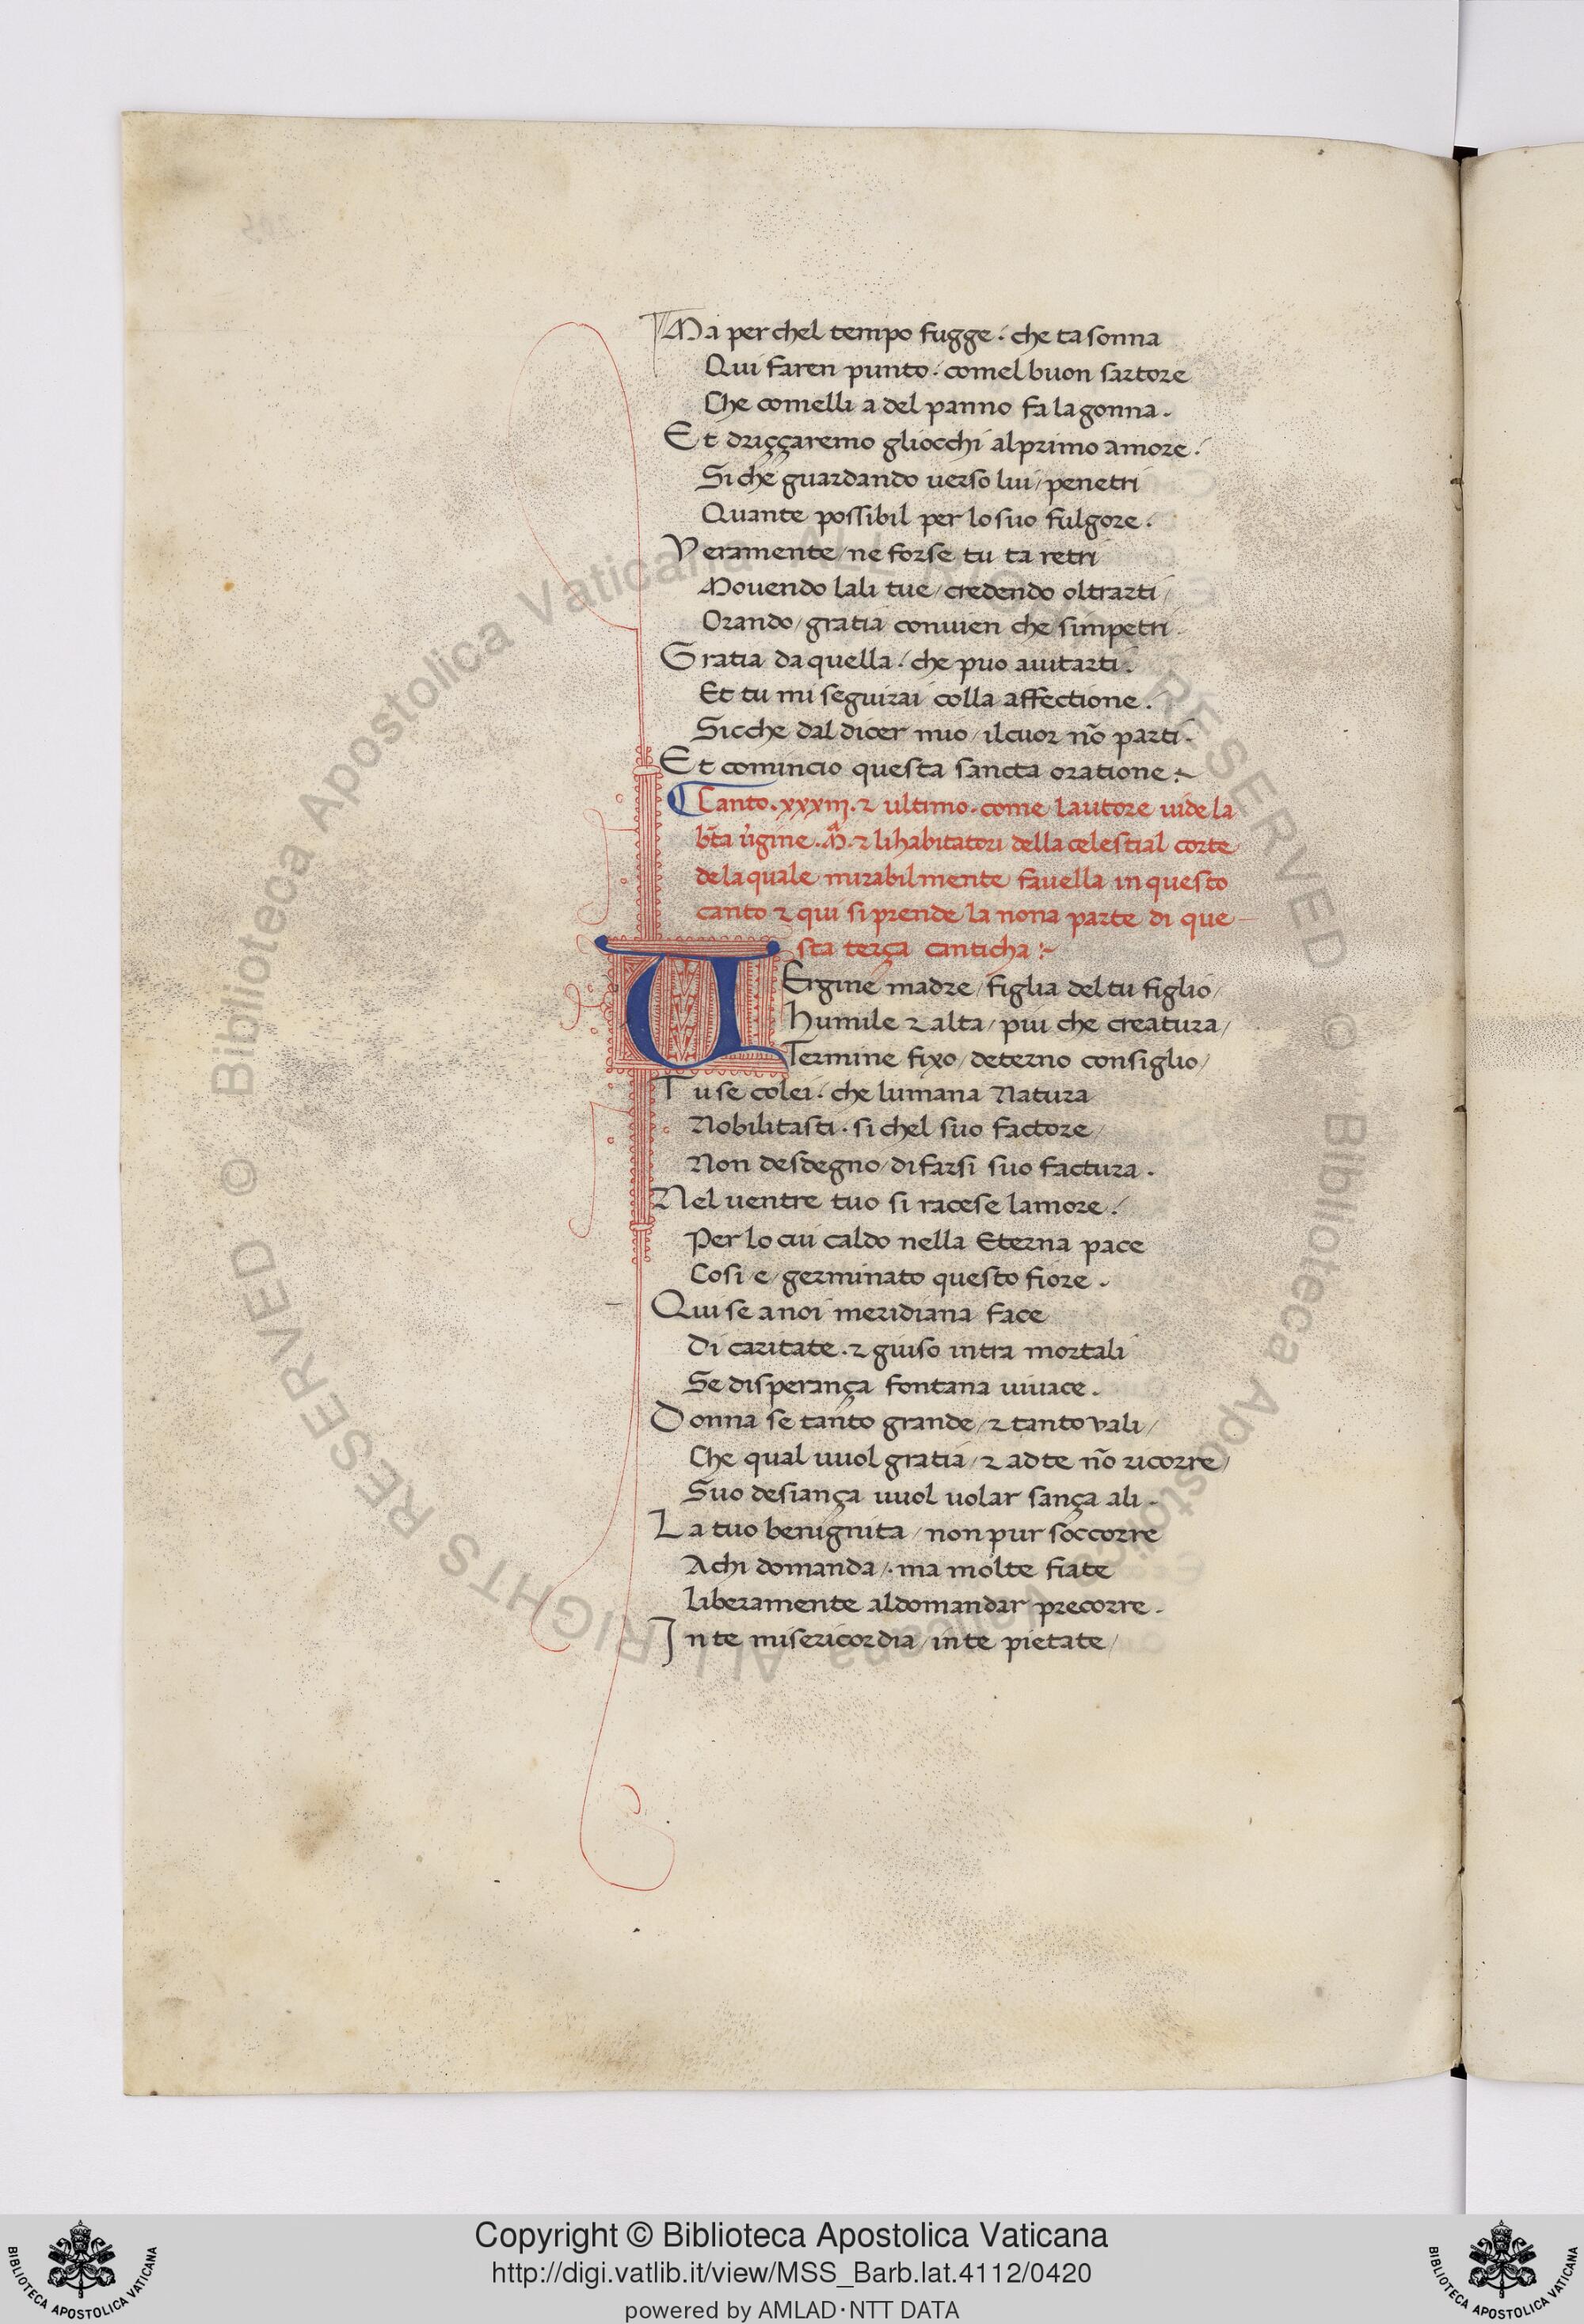 Ma perchel tempo fugge. che tasonna
Qui faren punto. comel buon sartore
Che comelli a del panno fa la gonna.
Et driççaremo gliocchi alprimo amore.
Siche guardando uerso lui / penetri
Quante possibil per lo suo fulgore.
Veramente / ne forse tu ta retri
Mouendo lali tue / credendo oltrarti /
Orando / gratia conuien che simpetri.
Gratia da quella. che puo aiutarti.
Et tu mi seguirai colla affectione.
Sicche dal dicer mio / ilcuor nõ parti.
Et comincio questa sancta oratione:~
Canto. xxxiij. ⁊ ultimo. come lautore uide la
bt̃a u̓gine. Mª. ⁊ lihabitatori della celestial corte
dela quale mirabilmente fauella in questo
canto ⁊ qui si prende la nona parte di que
sta terça canticha:~
VErgine madre / figlia del tu figlio /
humile ⁊ alta / piu che creatura /
Termine fixo / deterno consiglio /
Tu se colei. che lumana Natura
Nobilitasti. si chel suo factore /
Non desdegno / di farsi suo factura.
Nel uentre tuo si racese lamore.
Per lo cui caldo nella Eterna pace
Cosi e / germinato questo fiore.
Qui se a noi meridiana face
Di caritate. ⁊ giuso intra mortali
Se disperança fontana uiuace.
Donna se tanto grande / ⁊ tanto vali /
Che qual uuol gratia / ⁊ ad te nõ ricorre /
Suo desiança uuol uolar sança ali.
La tuo benignita / non pur soccorre
Achi domanda /. ma molte fiate
Liberamente aldomandar precorre.
In te misericordia / in te pietate /
© Biblioteca Apostolica Vaticana ALL RIGHTS RESERVED © Biblioteca Apostolica Vaticana ALL RIGHTS RESERVED
Copyright © Biblioteca Apostolica Vaticana
http://digi.vatlib.it/view/MSS_Barb.lat.4112/0420
powered by AMLAD·NTT DATA
BIBLIOTECA APOSTOLICA VATICANA
BIBLIOTECA APOSTOLICA VATICANA